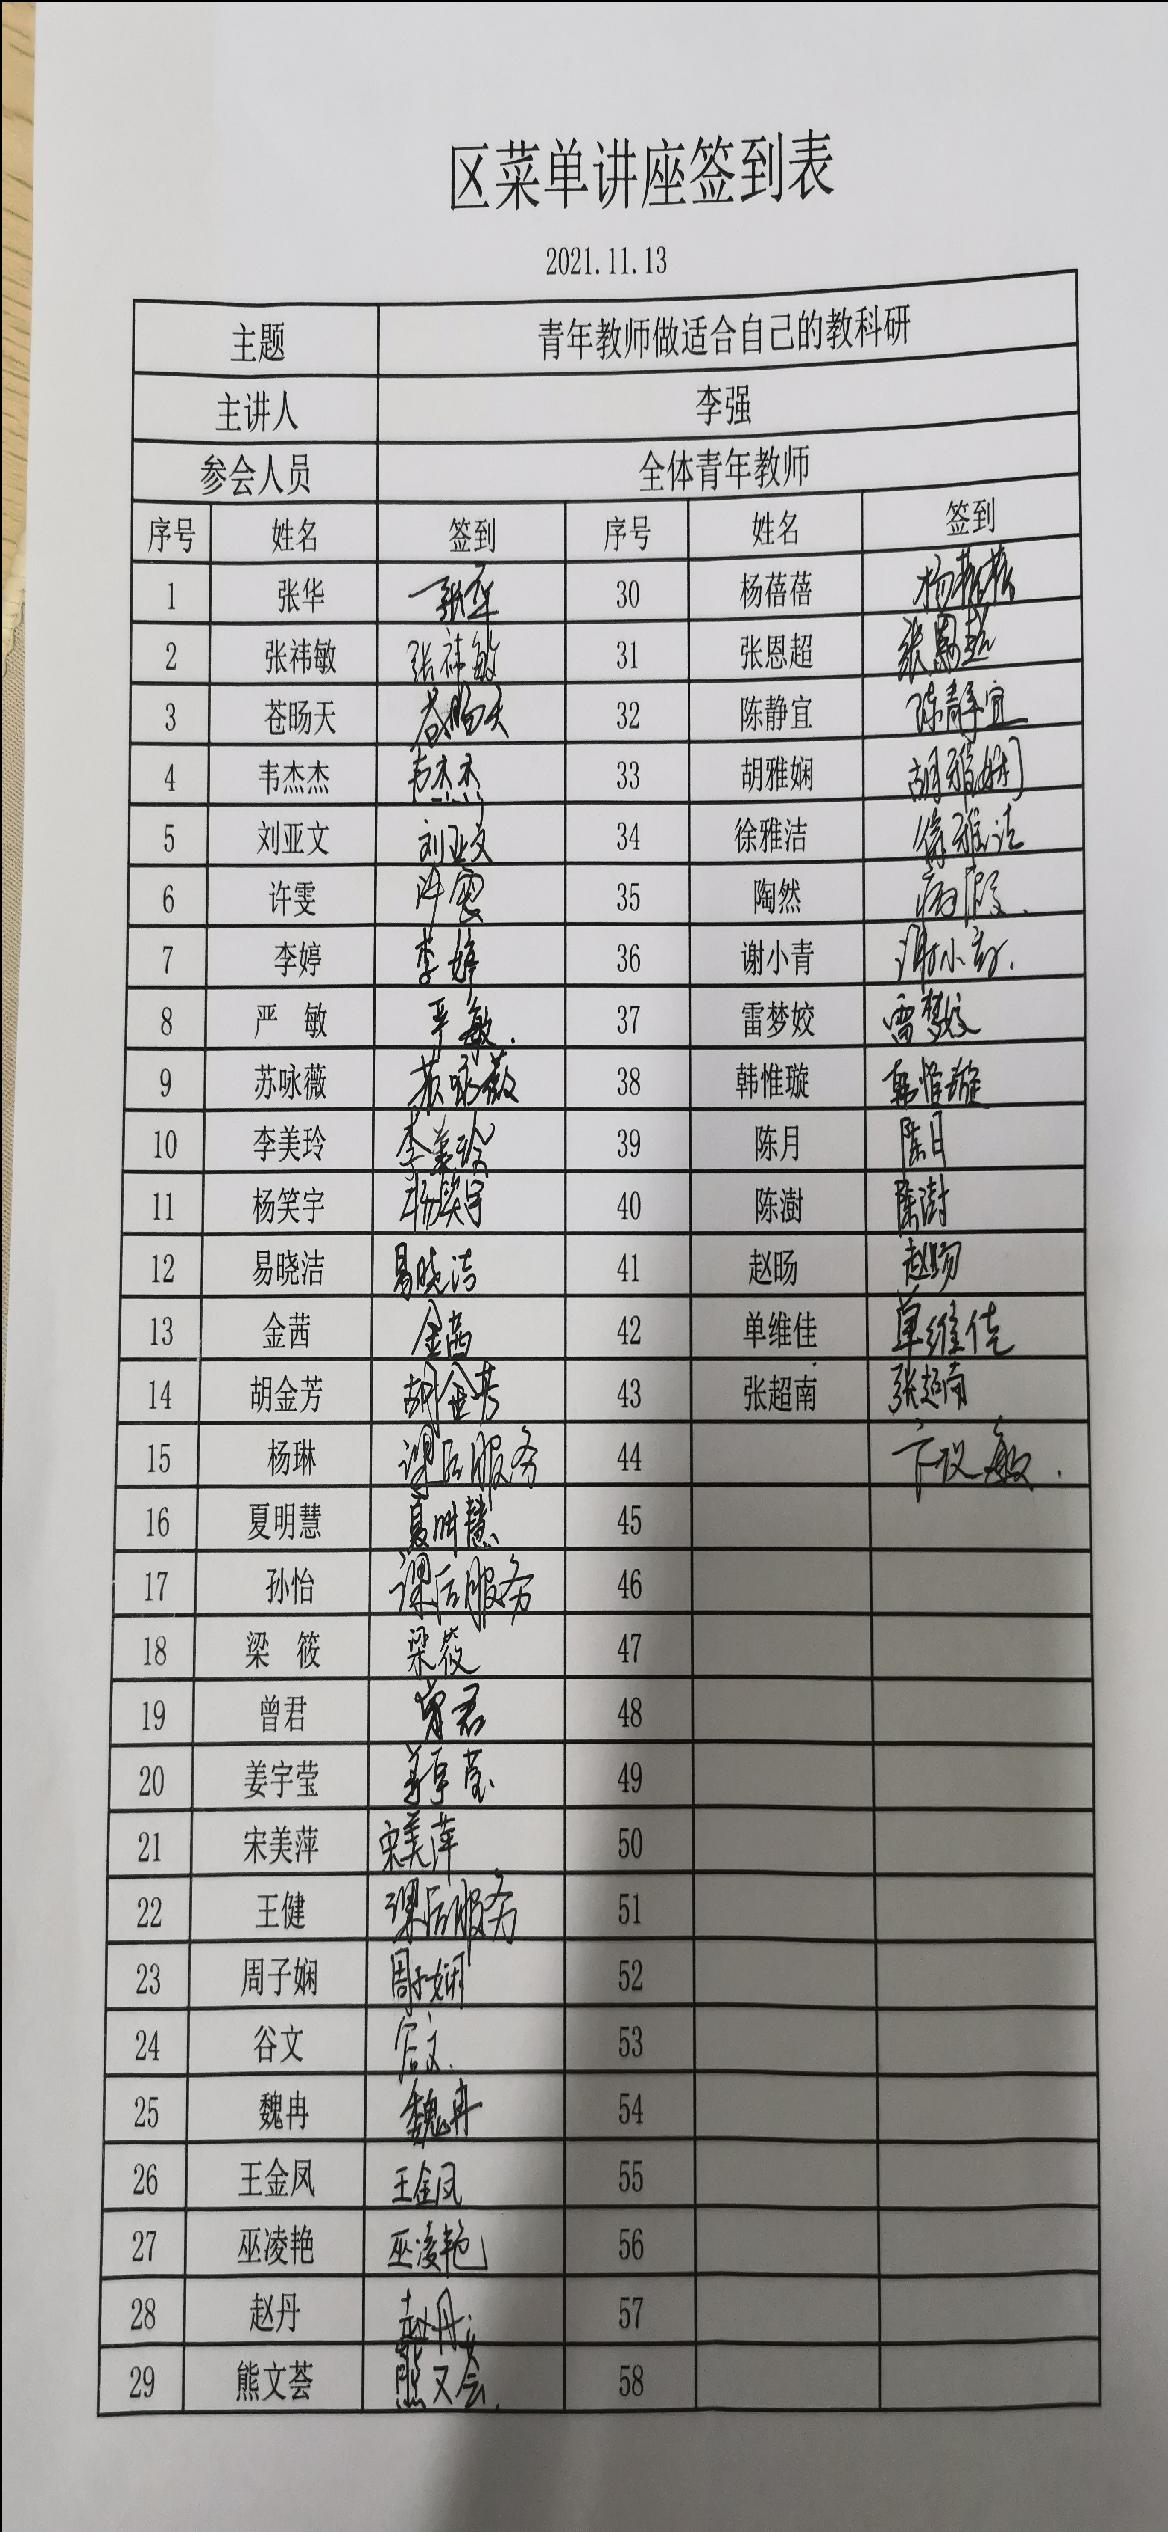 区菜单讲座签到表
2021.11.13
主题 青年教师做适合自己的教科研
主讲人 李强
参会人员 全体青年教师
序号 姓名 签到 序号 姓名 签到
1 张华 张华 30 杨蓓蓓 杨蓓蓓
2 张祎敏 张祎敏 31 张恩超 张恩超
3 苍旸天 苍旸天 32 陈静宜 陈静宜
4 韦杰杰 韦杰杰 33 胡雅娴 胡雅娴
5 刘亚文 刘亚文 34 徐雅洁 徐雅洁
6 许雯 许雯 35 陶然 病假.
7 李婷 李婷 36 谢小青 谢小青.
8 严 敏 严敏. 37 雷梦姣 雷梦姣
9 苏咏薇 苏咏薇 38 韩惟璇 韩惟璇
10 李美玲 李美玲 39 陈月 陈月
11 杨笑宇 杨笑宇 40 陈澍 陈澍
12 易晓洁 易晓洁 41 赵旸 赵旸
13 金茜 金茜 42 单维佳 单维佳
14 胡金芳 胡金芳 43 张超南 张超南
15 杨琳 课后服务 44
16 夏明慧 夏明慧 45
17 孙怡 课后服务 46
18 梁 筱 梁筱 47
19 曾君 曾君 48
20 姜宇莹 姜宇莹 49
21 宋美萍 宋美萍 50
22 王健 课后服务 51
23 周子娴 周子娴 52
24 谷文 谷文. 53
25 魏冉 魏冉 54
26 王金凤 王金凤 55
27 巫凌艳 巫凌艳 56
28 赵丹 赵丹 57
29 熊文荟 熊文荟. 58